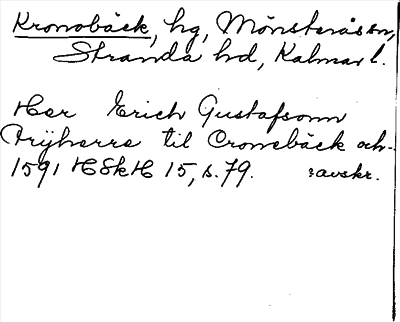 Kronobäck, hg, Mönsterås sn,
Stranda hd, Kalmar l.
Her Erich Gustafsonn
Fryherre til Cronebäck och-
1591 HSkH 15, s. 79. :avskr.